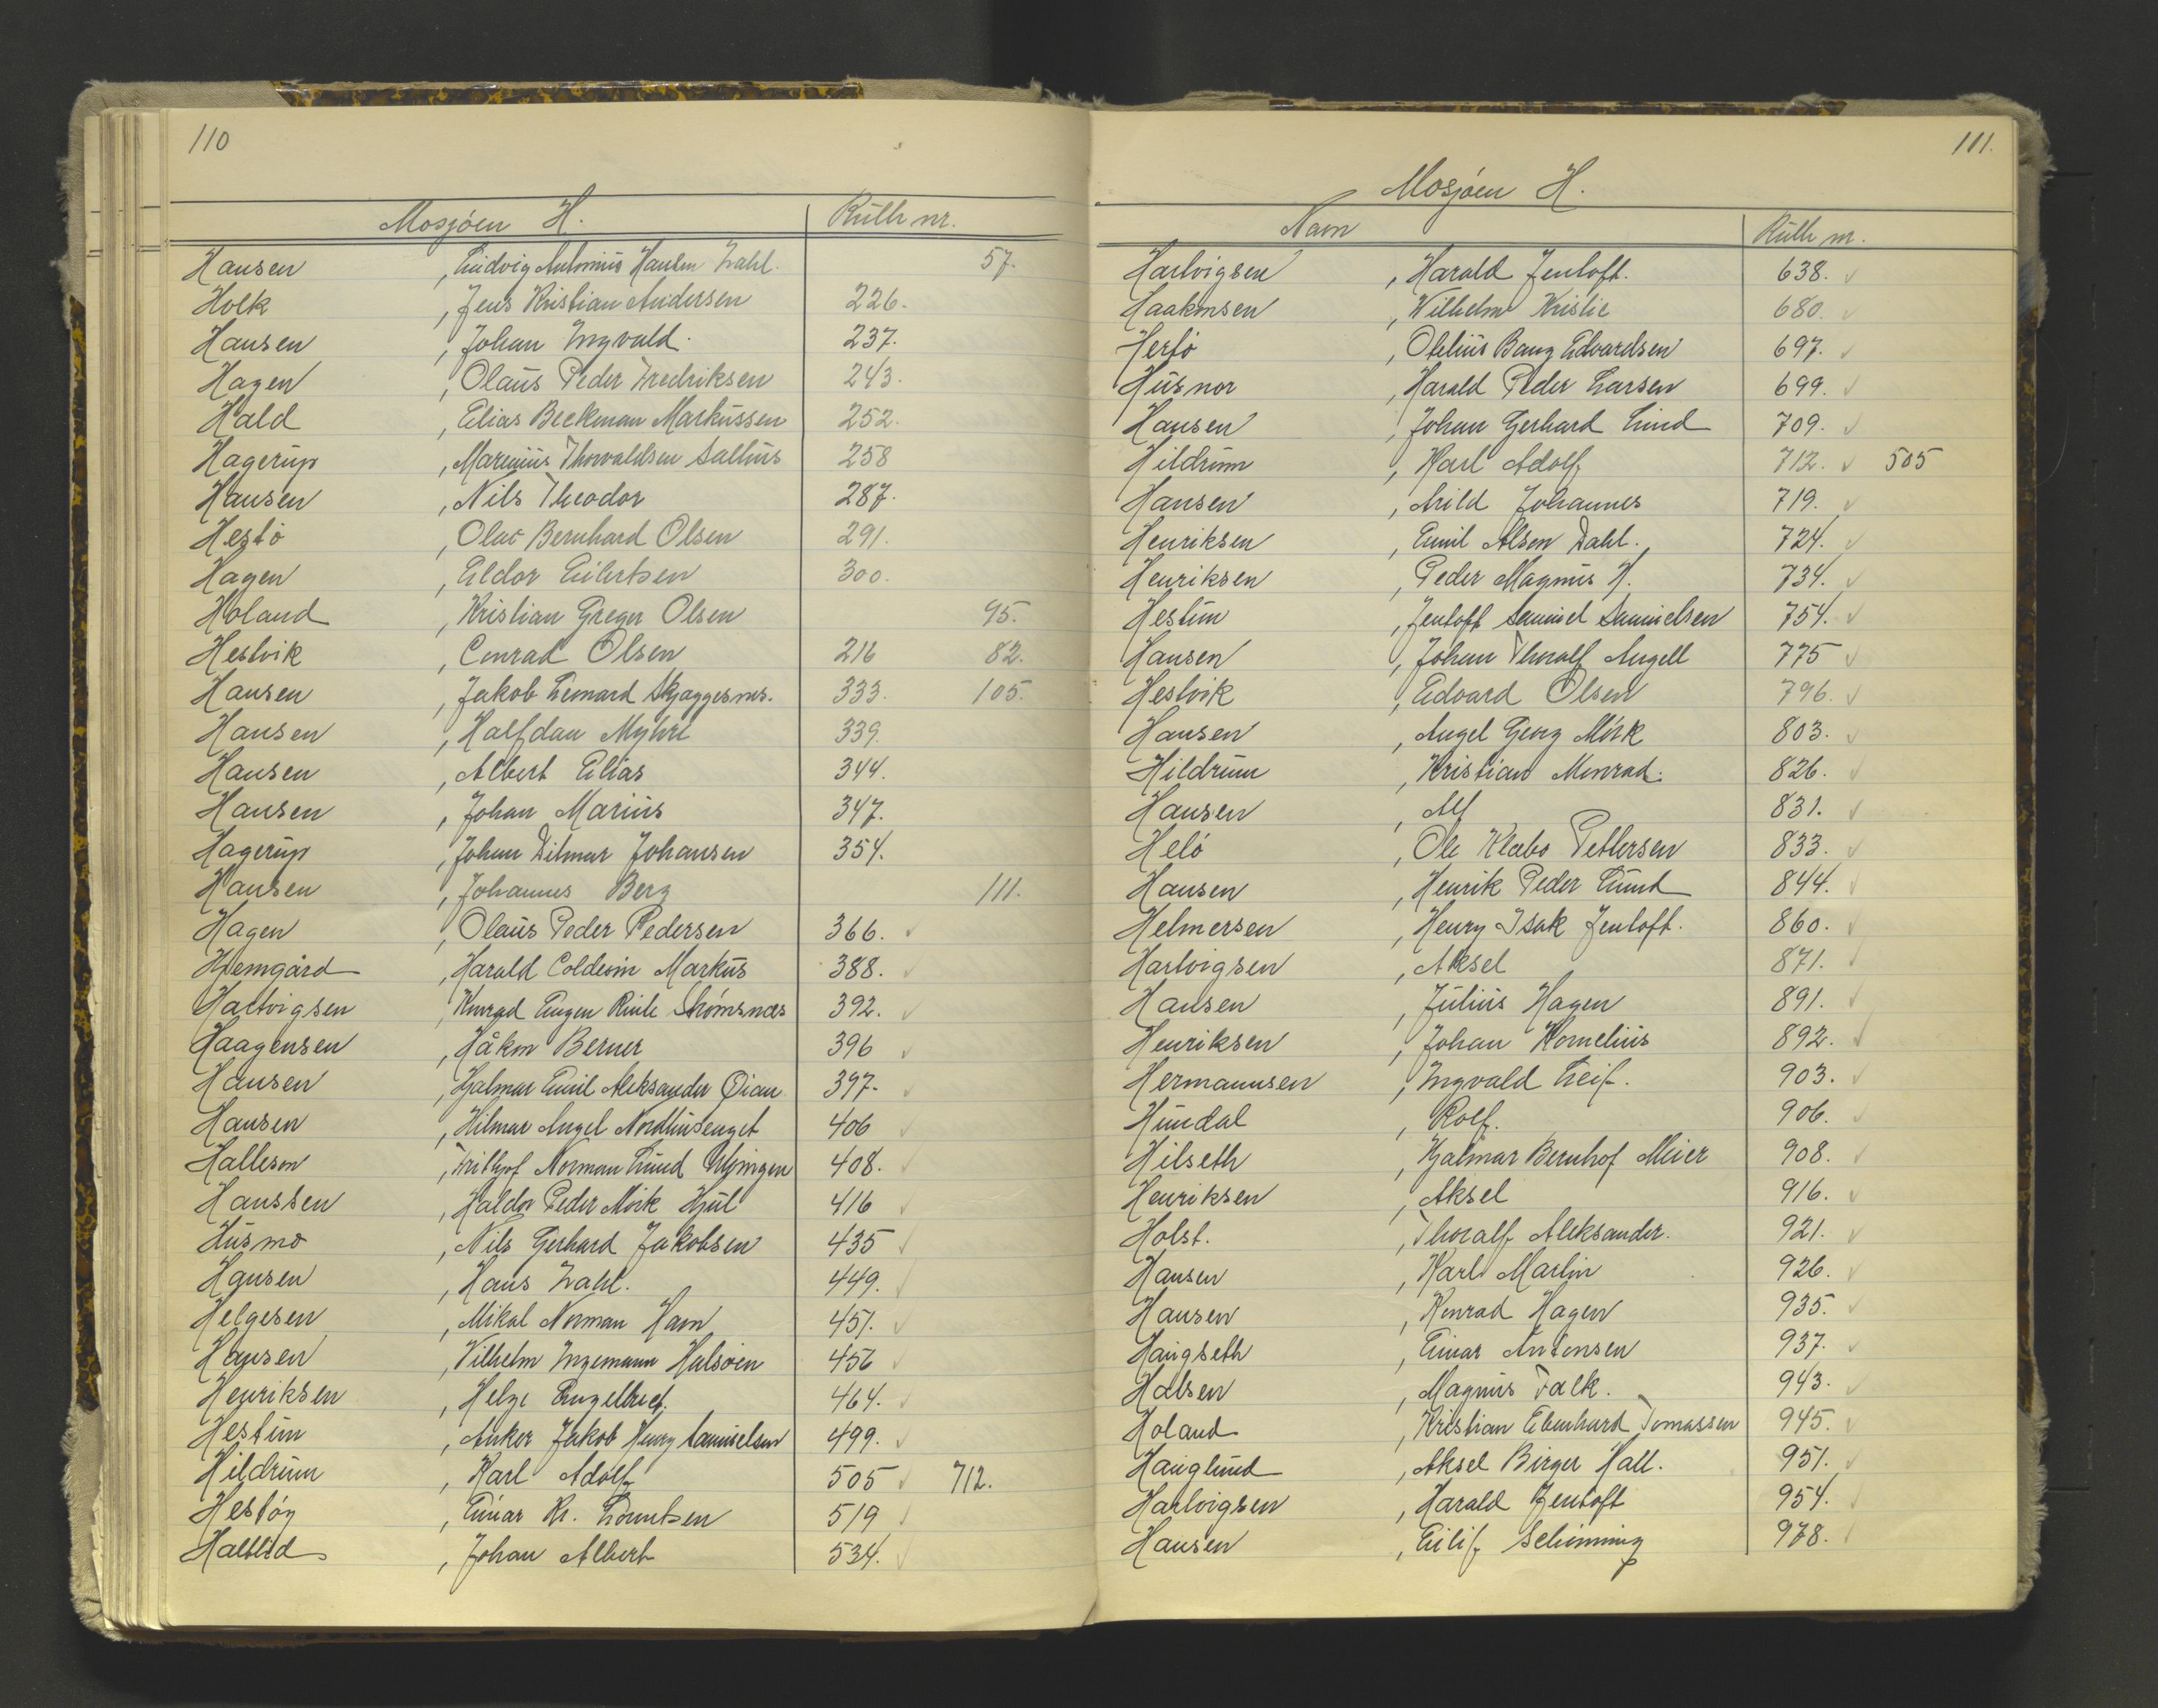 110
Mosjöen H. Rulle nr.
Hansen, Ludvig Antonius Hansen Zahl. 57.
Holk, Jens Kristian Andersen 226.
Hansen, Johan Ingvald. 237.
Hagen, Olaus Peder Fredriksen 243.
Hald, Elias Beckman Markussen 252.
Hagerup, Marenius Thorvaldsen Salhus 258
Hansen, Nils Theodor 287.
Hestö, Olav Bernhard Olsen 291.
Hagen, Eldor Eilertsen 300.
Holand, Kristian Greger Olsen 95.
Hestvik, Conrad Olsen 216 82.
Hansen, Jakob Lenard Skjaggesnes. 333. 105.
Hansen, Halfdan Myhre 339.
Hansen, Albert Elias 344.
Hansen, Johan Marius 347.
Hagerup, Johan Dilmar Johansen 354.
Hansen, Johannes Berg 111.
Hagen, Olaus Peder Pedersen 366. ✓
Hjemgård, Harald Coldevin Markus 388. ✓
Hartvigsen, Konrad Eugen Strömsnæs 392. ✓
Haagensen, Håkon Berner 396 ✓
Hansen, Hjalmar Emil Aleksander Öian 397. ✓
Hansen, Hilmar Angel Nordhusenget 406 ✓
Halleson, Frithjof Norman Lund 408. ✓
Hanssen, Haldor Peder Mörk Hjul 416 ✓
Husmo, Nils Gerhard Jakobsen 435 ✓
Hansen, Hans Zahl. 449. ✓
Helgesen, Mikal Norman Ham 451. ✓
Hansen, Vilhelm Ingemann Halsöen 456 ✓
Henriksen, Helge Engelbrect. 464. ✓
Hestun, Anker Jakob Henry Samuelsen 499. ✓
Hildrum, Karl Adolf 505 ✓ 712.
Hestöy, Einar Kr. Lorentsen 519 ✓
Johan Albert 534. ✓
111.
Mosjöen H.
Navn Rulle nr.
Hartvigsen, Harald Jentoft. 638. ✓
Haakonsen, Wilhelm Kristie 680. ✓
Hertö, Othelius Bang Edvardsen 697. ✓
Harald Peder Larsen 699. ✓
Hansen, Johan Gerhard Lund 709. ✓
Hildrum, Karl Adolf 712. ✓ 505
Hansen, Arild Johannes 719. ✓
Henriksen, Emil Olsen Dahl. 724. ✓
Henriksen, Peder Magnus H. 734. ✓
Hestun, Jentoft Samuel Samuelsen 754. ✓
Hansen, Johan Thoralf Angell 775 ✓
Hestvik, Edvard Olsen 796. ✓
Hansen, Angel Georg Mörk 803. ✓
Hildrum, Kristian Monrad. 826. ✓
Hansen, Alf 831. ✓
Helö, Ole Klæbo Pettersen 833. ✓
Hansen, Henrik Peder Lund 844. ✓
Helmersen, Henry Isak Jentoft. 860. ✓
Hartvigsen, Aksel 871. ✓
Hansen, Julius Hagen 891. ✓
Henriksen, Johan Kornelius 892. ✓
Hermannsen, Ingvald Leif. 903. ✓
Hundal, Rolf. 906. ✓
Hilseth, Hjalmar Bernhof Meier 908. ✓
Henriksen, Aksel 916. ✓
Holst., Thoralf Aleksander. 921. ✓
Hansen, Karl Martin 926. ✓
Hansen, Konrad Hagen 935. ✓
Haugseth, Einar Antonsen 937. ✓
Halsen, Magnus Falk. 943. ✓
Holand, Kristian Edenhard Tomassen 945. ✓
Hauglund, Aksel Birger Hall. 951. ✓
Hartvigsen, Harald Jentoft 954. ✓
Hansen, Eilif Schönning 978. ✓